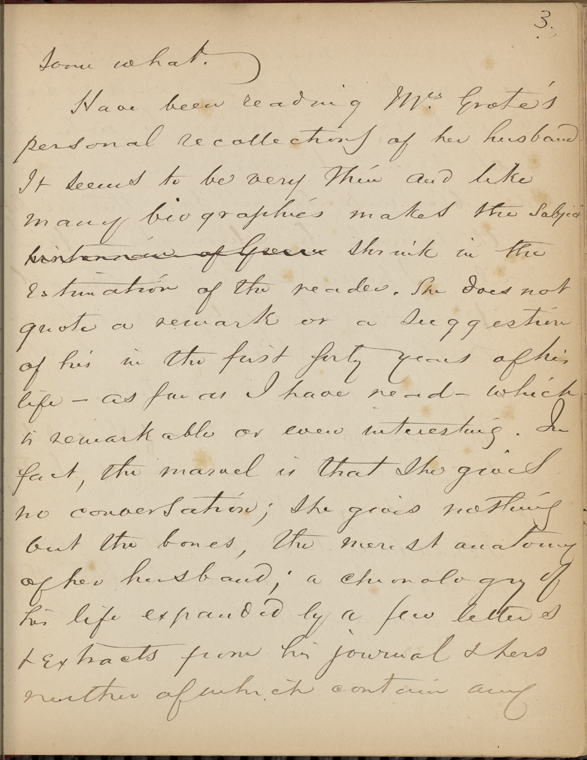 3.
some what.
Have been reading Mrs. Grote's
personal recollections of her husband
It seems to be very thin and like
many biographies makes the subject
historian of Greece shrink in the
estimation of the reader. She does not
quote a remark or a suggestion
of his in the first forty years of his
life – as far as I have read – which
is remarkable or even interesting. In
fact, the marvel is that she gives
no conversation; she gives nothing
but the bones, the merest anatomy
of her husband; a chronology of
his life expanded by a few letters
& extracts from his journal & hers
neither of which contain any